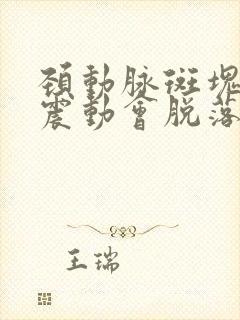 頸動脉斑塊
震動會脱落
王瑞